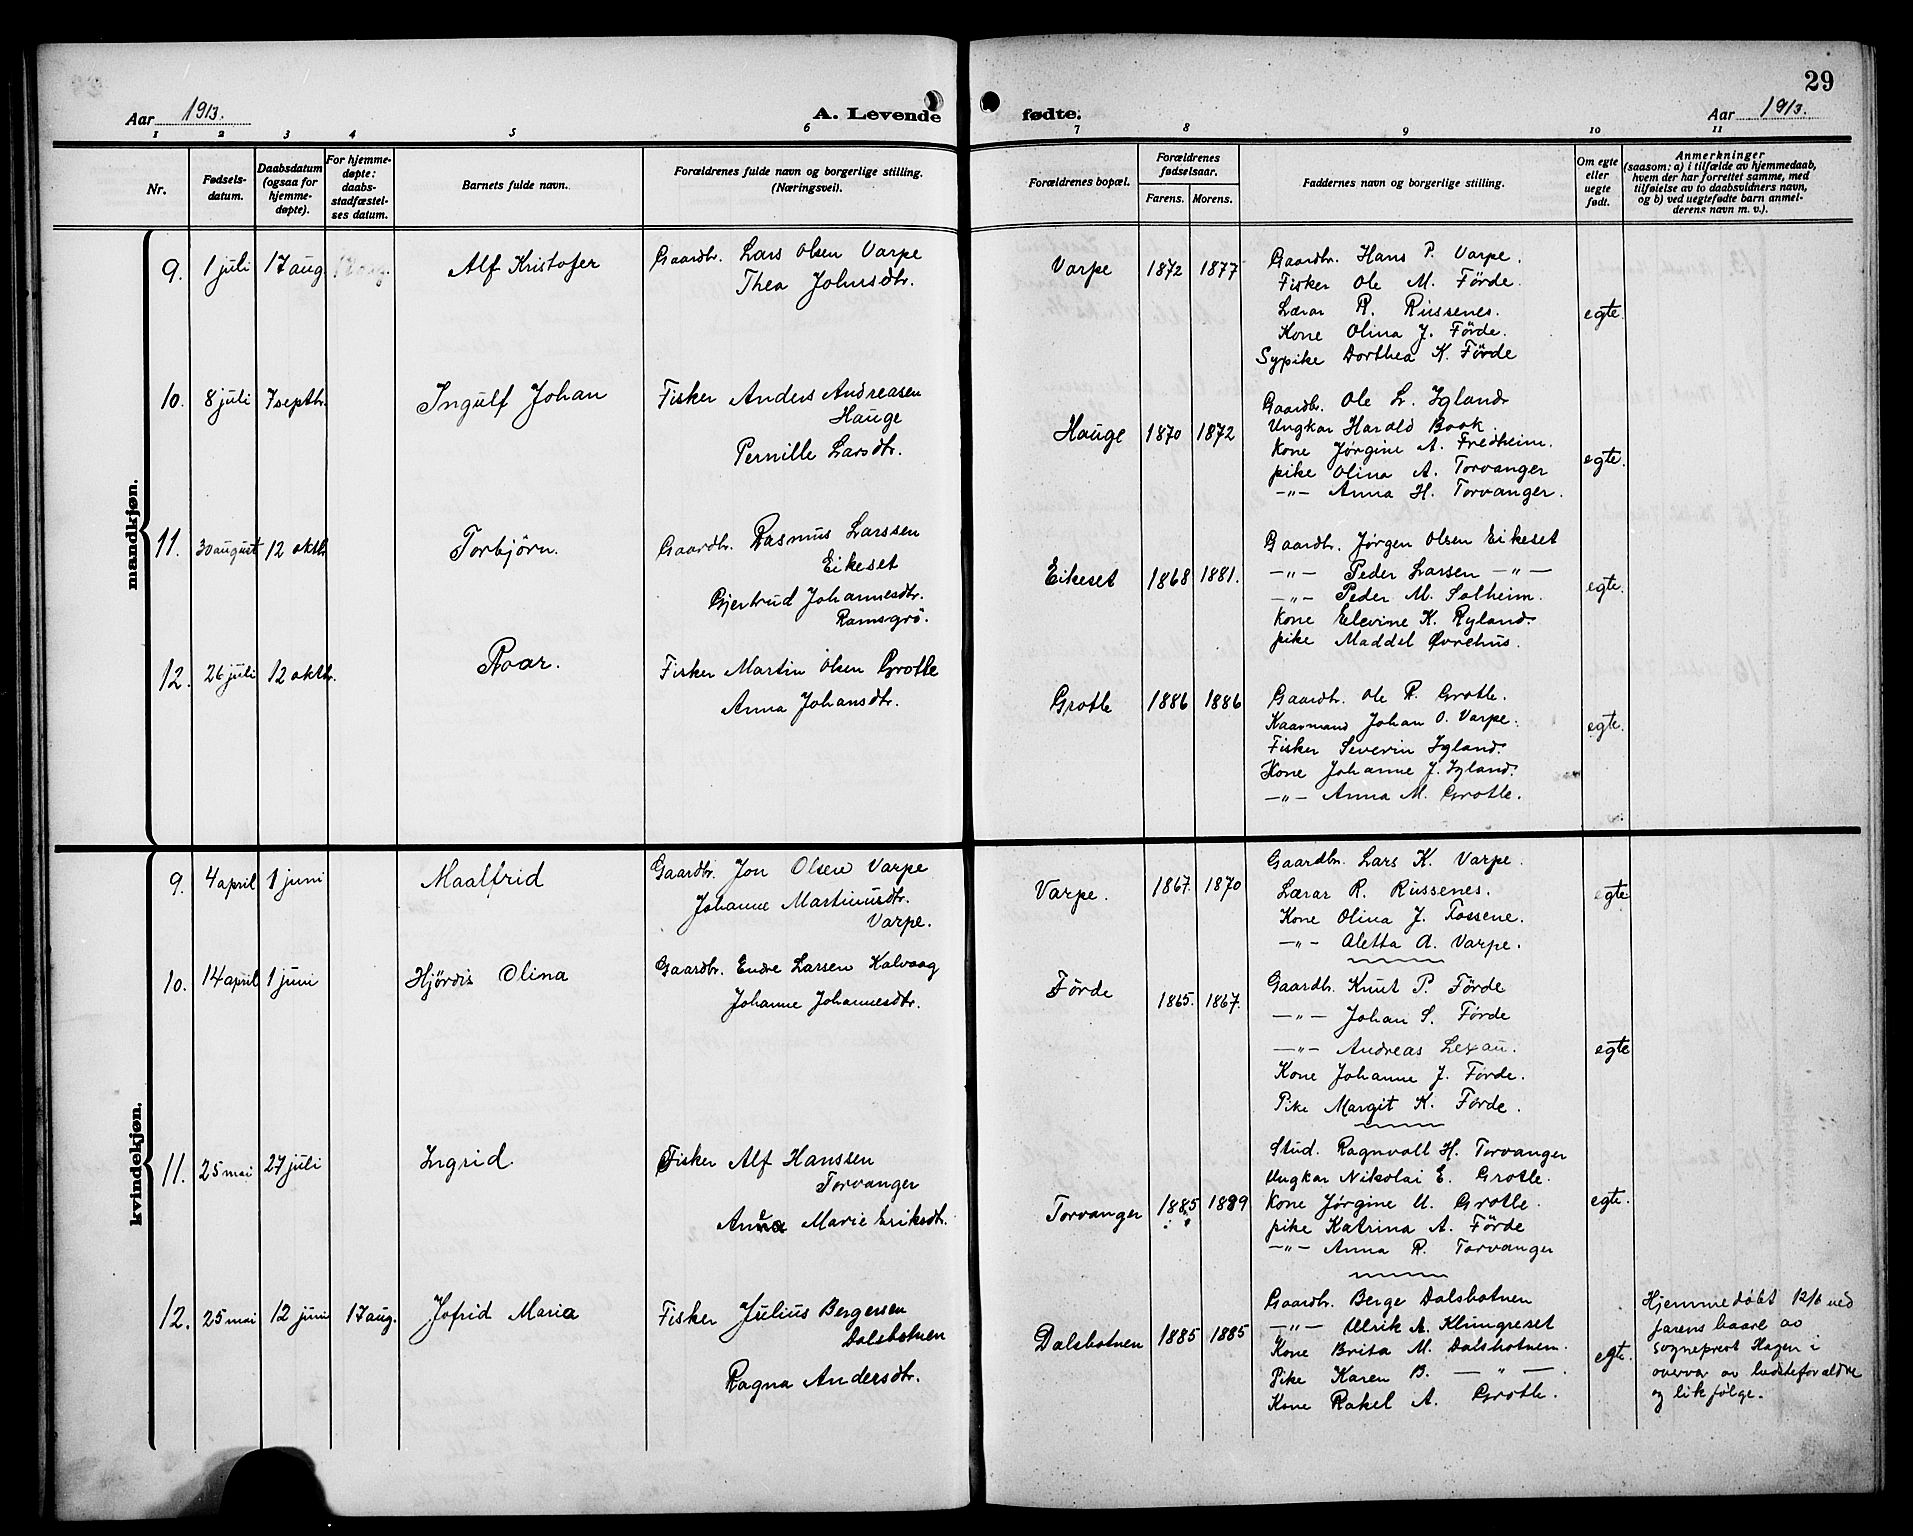 29
Aar 1913.
A. Levende
fødte.
Aar 1913.
1 2 3 4 5 6 7 8 9 10 11
Nr.
Fødsels-
datum.
Daabsdatum
(ogsaa for
hjemme-
døpte).
For hjemme-
døpte:
daabs-
stadfæstel-
ses datum.
Barnets fulde navn.
Forældrenes fulde navn og borgerlige stilling.
(Næringsvei).
Forældrenes bopæl.
Forældrenes
fødselsaar.
Farens. Morens.
Faddernes navn og borgerlige stilling.
Om egte
eller
uegte
født.
Anmerkninger
(saasom: a) i tilfælde av hjemmedaab,
hvem der har forrettet samme, med
tilføielse av to daabsvidners navn,
og b) ved uegtefødte barn anmel-
derens navn m. v.).
mandkjøn.
9. 1 juli 17 aug. Alf Kristofer Gaardbr. Lars Olsen Varpe
Thea Johnsdtr.
Varpe 1872 1877 egte.
Gaardbr. Hans P. Varpe.
Fisker Ole M. Förde.
Lærar R. Russenes.
Kone Olina J. Förde.
Sypike Dorthea K. Förde
10. 8 juli 7 septbr. Ingulf Johan Fisker Anders Andreasen
Hauge
Pernille Larsdtr.
Hauge 1870 1872 egte.
Gaardbr. Ole L. Igland
Ungkar Harald Book.
Kone Jørgine A. Fredheim.
pike Olina A. Torvanger
-"- Anna H. Torvanger.
11. 30 august 12 oktbr. Torbjörn. Gaardbr. Rasmus Larssen
Eikeset
Gjertrud Johannesdtr.
Ramsgrö.
Eikeset 1868 1881. egte.
Gaardbr. Jørgen Olsen Eikeset
-"- Peder Larsen -"-
-"- Peder M. Solheim.
Kone Elevine K. Ryland.
pike Maddel Øvrehus.
12. 26 juli 12 oktbr. Roar. Fisker Martin Olsen Grotle
Anna Johansdtr.
Grotle 1886 1886 egte.
Gaardbr. Ole R. Grotle.
Kaarmand Johan O. Varpe.
Fisker Severin Igland.
Kone Johanne J. Igland.
-"- Anna M. Grotle.
kvindekjøn.
9. 4 april 1 juni Maalfrid Gaardbr. Jon Olsen Varpe
Johanne Martinusdtr.
Varpe.
Varpe. 1867. 1870 egte
Gaardbr. Lars K. Varpe.
Lærar R. Russenes.
Kone Olina J. Fossene.
-"- Aletta A. Varpe.
10. 14 april 1 juni Hjördis Olina Gaardbr. Endre Larsen Kalvaag
Johanne Johannesdtr.
Förde 1865. 1867. egte
Gaardbr. Knut P. Förde
-"- Johan S. Förde
-"- Andreas Lexau.
Kone Johanne J. Förde.
Pike Margit K. Förde.
11. 25 mai 27 juli Ingrid. Fisker Alf Hanssen
Torvanger
Anna Marie Eriksdtr.
Torvanger 1885 1889 egte.
Stud. Ragnvall H. Torvanger
Ungkar Nikolai E. Grotle.
Kone Jørgine U. Grotle.
pike Katrina A. Förde
-"- Anna R. Torvanger
12. 25 mai 12 juni 17 aug. Jofrid Maria Fisker Julius Bergersen
Dalsbotnen
Ragna Andersdtr.
Dalsbotnen 1885 1885 egte.
Gaardbr. Berge Dalsbotnen
-"- Ulrik A. Klungreset
Kone Brita M. Dalsbotnen.
Pike Karen B. -"-
Kone Rakel A. Grotle.
Hjemmedöbt 12/6 ved
farens baare av
sogneprest Hagen i
overvær av bedsteforældre
og likfölge.